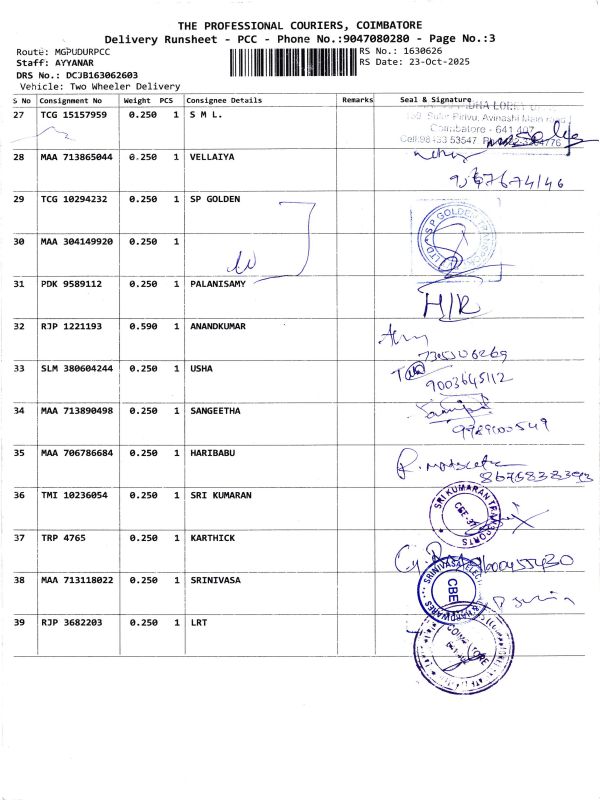 THE PROFESSIONAL COURIERS, COIMBATORE
Delivery Runsheet - PCC - Phone No.:9047080280 - Page No.:3
Route: MGPUDURPCC
RS No.: 1630626
Staff: AYYANAR
RS Date: 23-Oct-2025
DRS No.: DCJB163062603
Vehicle: Two Wheeler Delivery
S No Consignment No Weight PCS Consignee Details Remarks Seal & Signature
27 TCG 15157959 0.250 1 S M L.
Avinashi Main road
Coimbatore - 641 407
28 MAA 713865044 0.250 1 VELLAIYA
29 TCG 10294232 0.250 1 SP GOLDEN
S P GOLDEN TRANSPORT
30 MAA 304149920 0.250 1
31 PDK 9589112 0.250 1 PALANISAMY
H/R
32 RJP 1221193 0.590 1 ANANDKUMAR
33 SLM 380604244 0.250 1 USHA
9003645112
34 MAA 713890498 0.250 1 SANGEETHA
35 MAA 706786684 0.250 1 HARIBABU
36 TMI 10236054 0.250 1 SRI KUMARAN
SRI KUMARAN TRANSPORTS
37 TRP 4765 0.250 1 KARTHICK
38 MAA 713118022 0.250 1 SRINIVASA
CBE
39 RJP 3682203 0.250 1 LRT
COIMBATORE